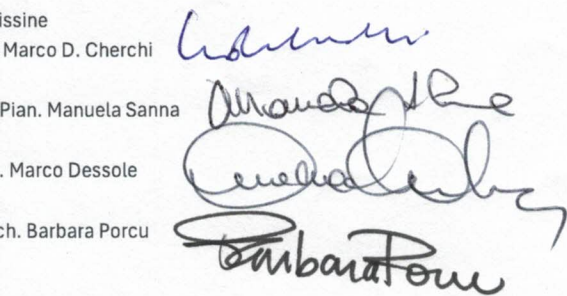 issine
Marco D. Cherchi
Pian. Manuela Sanna Manuela
. Marco Dessole
ch. Barbara Porcu Barbara Porcu